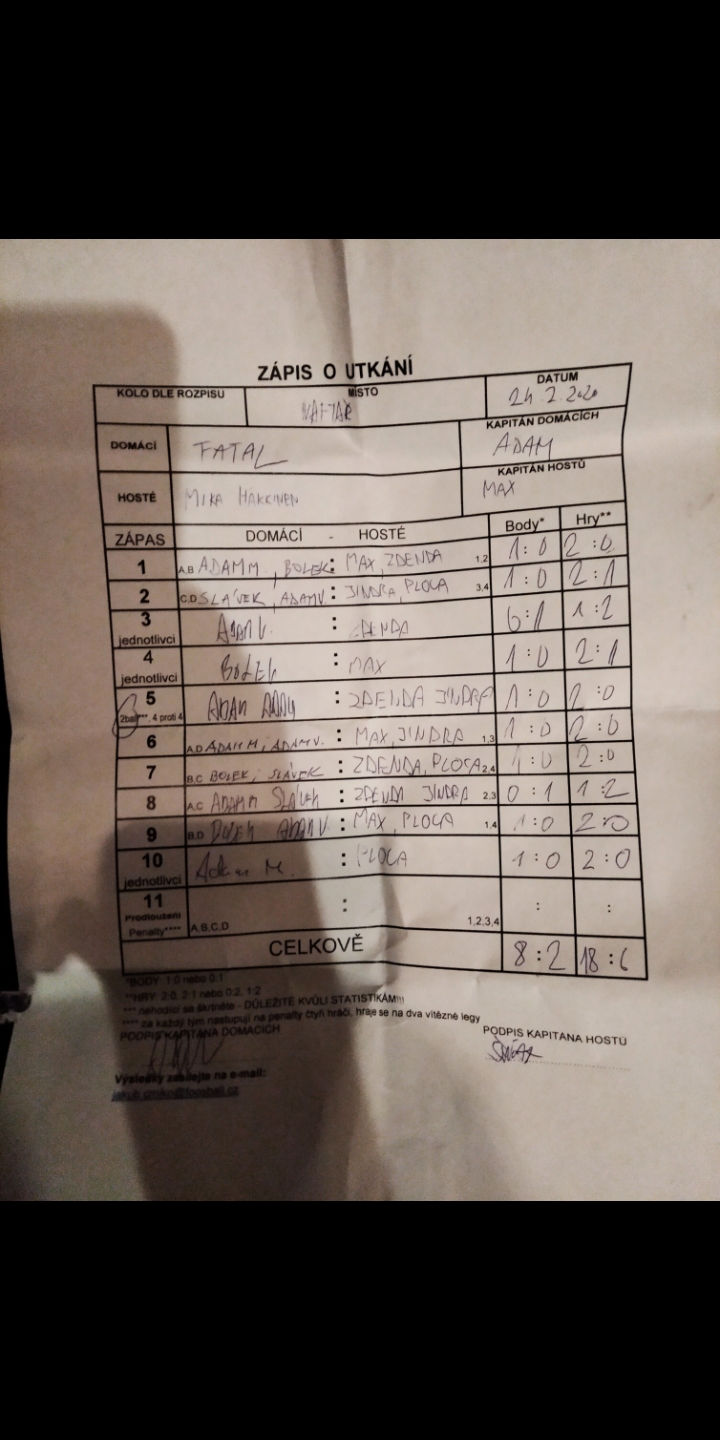 ZÁPIS O UTKÁNÍ
KOLO DLE ROZPISU MÍSTO DATUM
NAFTAR 24.2.2020
DOMÁCÍ FATAL KAPITÁN DOMÁCÍCH ADAM
HOSTÉ MIKA HAKKINEN KAPITÁN HOSTŮ MAX
ZÁPAS DOMÁCÍ - HOSTÉ Body* Hry**
1 A,B ADAM M, BOLEK : MAX, ZDENDA 1,2 1:0 2:0
2 C,D SLÁVEK, ADAM V. : JINDRA, PLOCA 3,4 1:0 2:1
3 jednotlivci ADAM V. : ZDENDA 0:1 1:2
4 jednotlivci BOLEK : MAX 1:0 2:1
5 2ball***, 4 proti 4 ADAM : ZDENDA JINDRA 1:0 2:0
6 A,D ADAM M, ADAM V. : MAX, JINDRA 1,3 1:0 2:0
7 B,C BOLEK, SLÁVEK : ZDENDA, PLOCA 2,4 1:0 2:0
8 A,C ADAM M SLÁVEK : ZDENDA JINDRA 2,3 0:1 1:2
9 B,D ADAM V : MAX, PLOCA 1,4 1:0 2:0
10 jednotlivci Adam M. : PLOCA 1:0 2:0
11 Prodloužení Penalty**** A,B,C,D : 1,2,3,4 : :
CELKOVĚ 8:2 18:6
*BODY: 1:0 nebo 0:1
**HRY: 2:0, 2:1 nebo 0:2, 1:2
*** nehodící se škrtněte - DŮLEŽITÉ KVŮLI STATISTIKÁM!!!
**** za každý tým nastupují na penalty čtyři hráči, hraje se na dva vítězné legy
PODPIS KAPITÁNA DOMÁCÍCH PODPIS KAPITÁNA HOSTŮ
Výsledky zasílejte na e-mail: